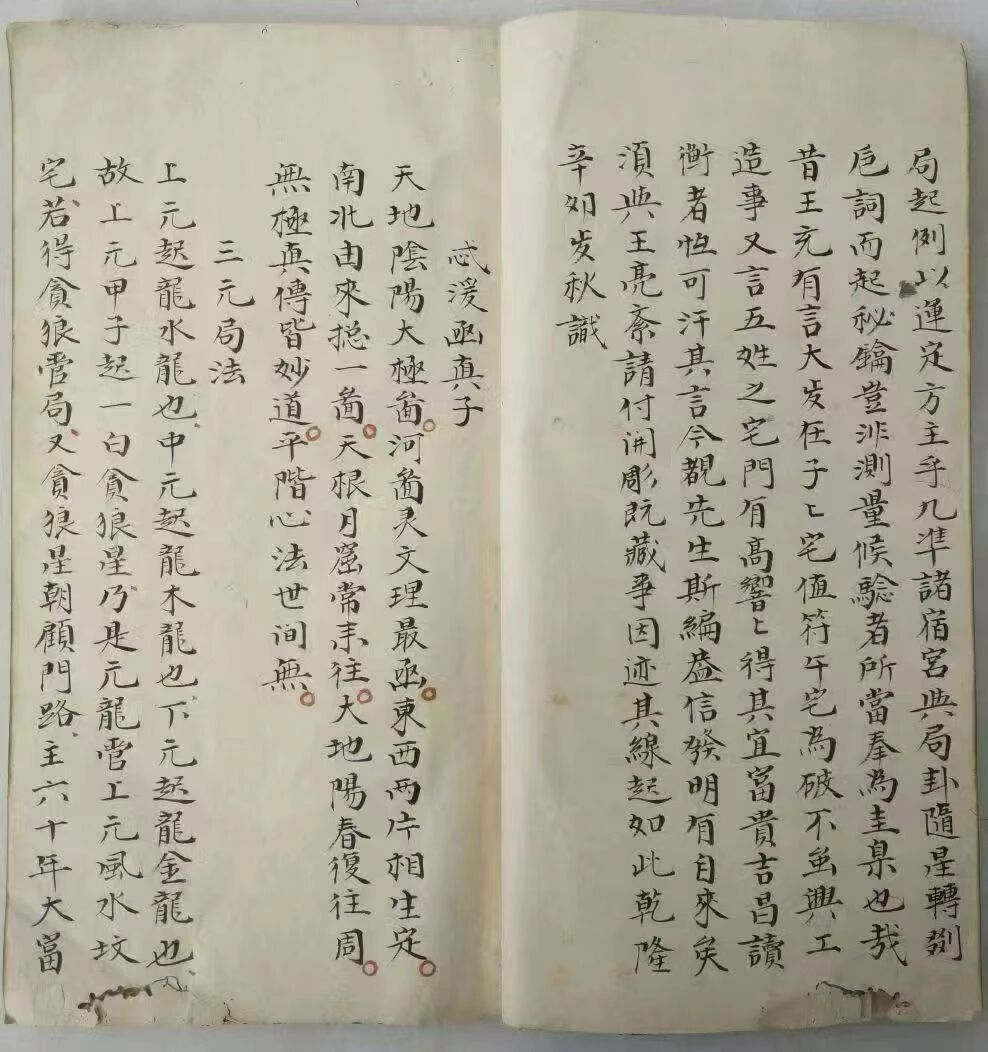 局起例以運定方主乎九準諸宿宮典局卦隨星轉別
卮詞而起秘鑰豈非測量候驗者所當奉為圭臬也哉
昔王充有言大歲在子〻宅值符午宅為破不𠖥興工
造事又言五姓之宅門有高響〻得其宜富貴吉昌讀
衡者怛可汗其言今覩先生斯編益信發明有自來矣
湏典王亮紊請付開彫既藏事因迹其線起如此乾隆
辛夘歲秋識
忒湲函真子
天地陰陽大極啚河啚灵文理最函東西两片相生定
南北由來揔一啚天根月窟常来往大地陽春復往周
無極真傳皆妙道平階心法世间無
三元局法
上元起龍水龍也中元起龍木龍也下元起龍金龍也
故上元甲子起一白貪狼星乃是元龍管上元風水坟
宅若得貪狼管局又貪狼星朝顧門路主六十年大富